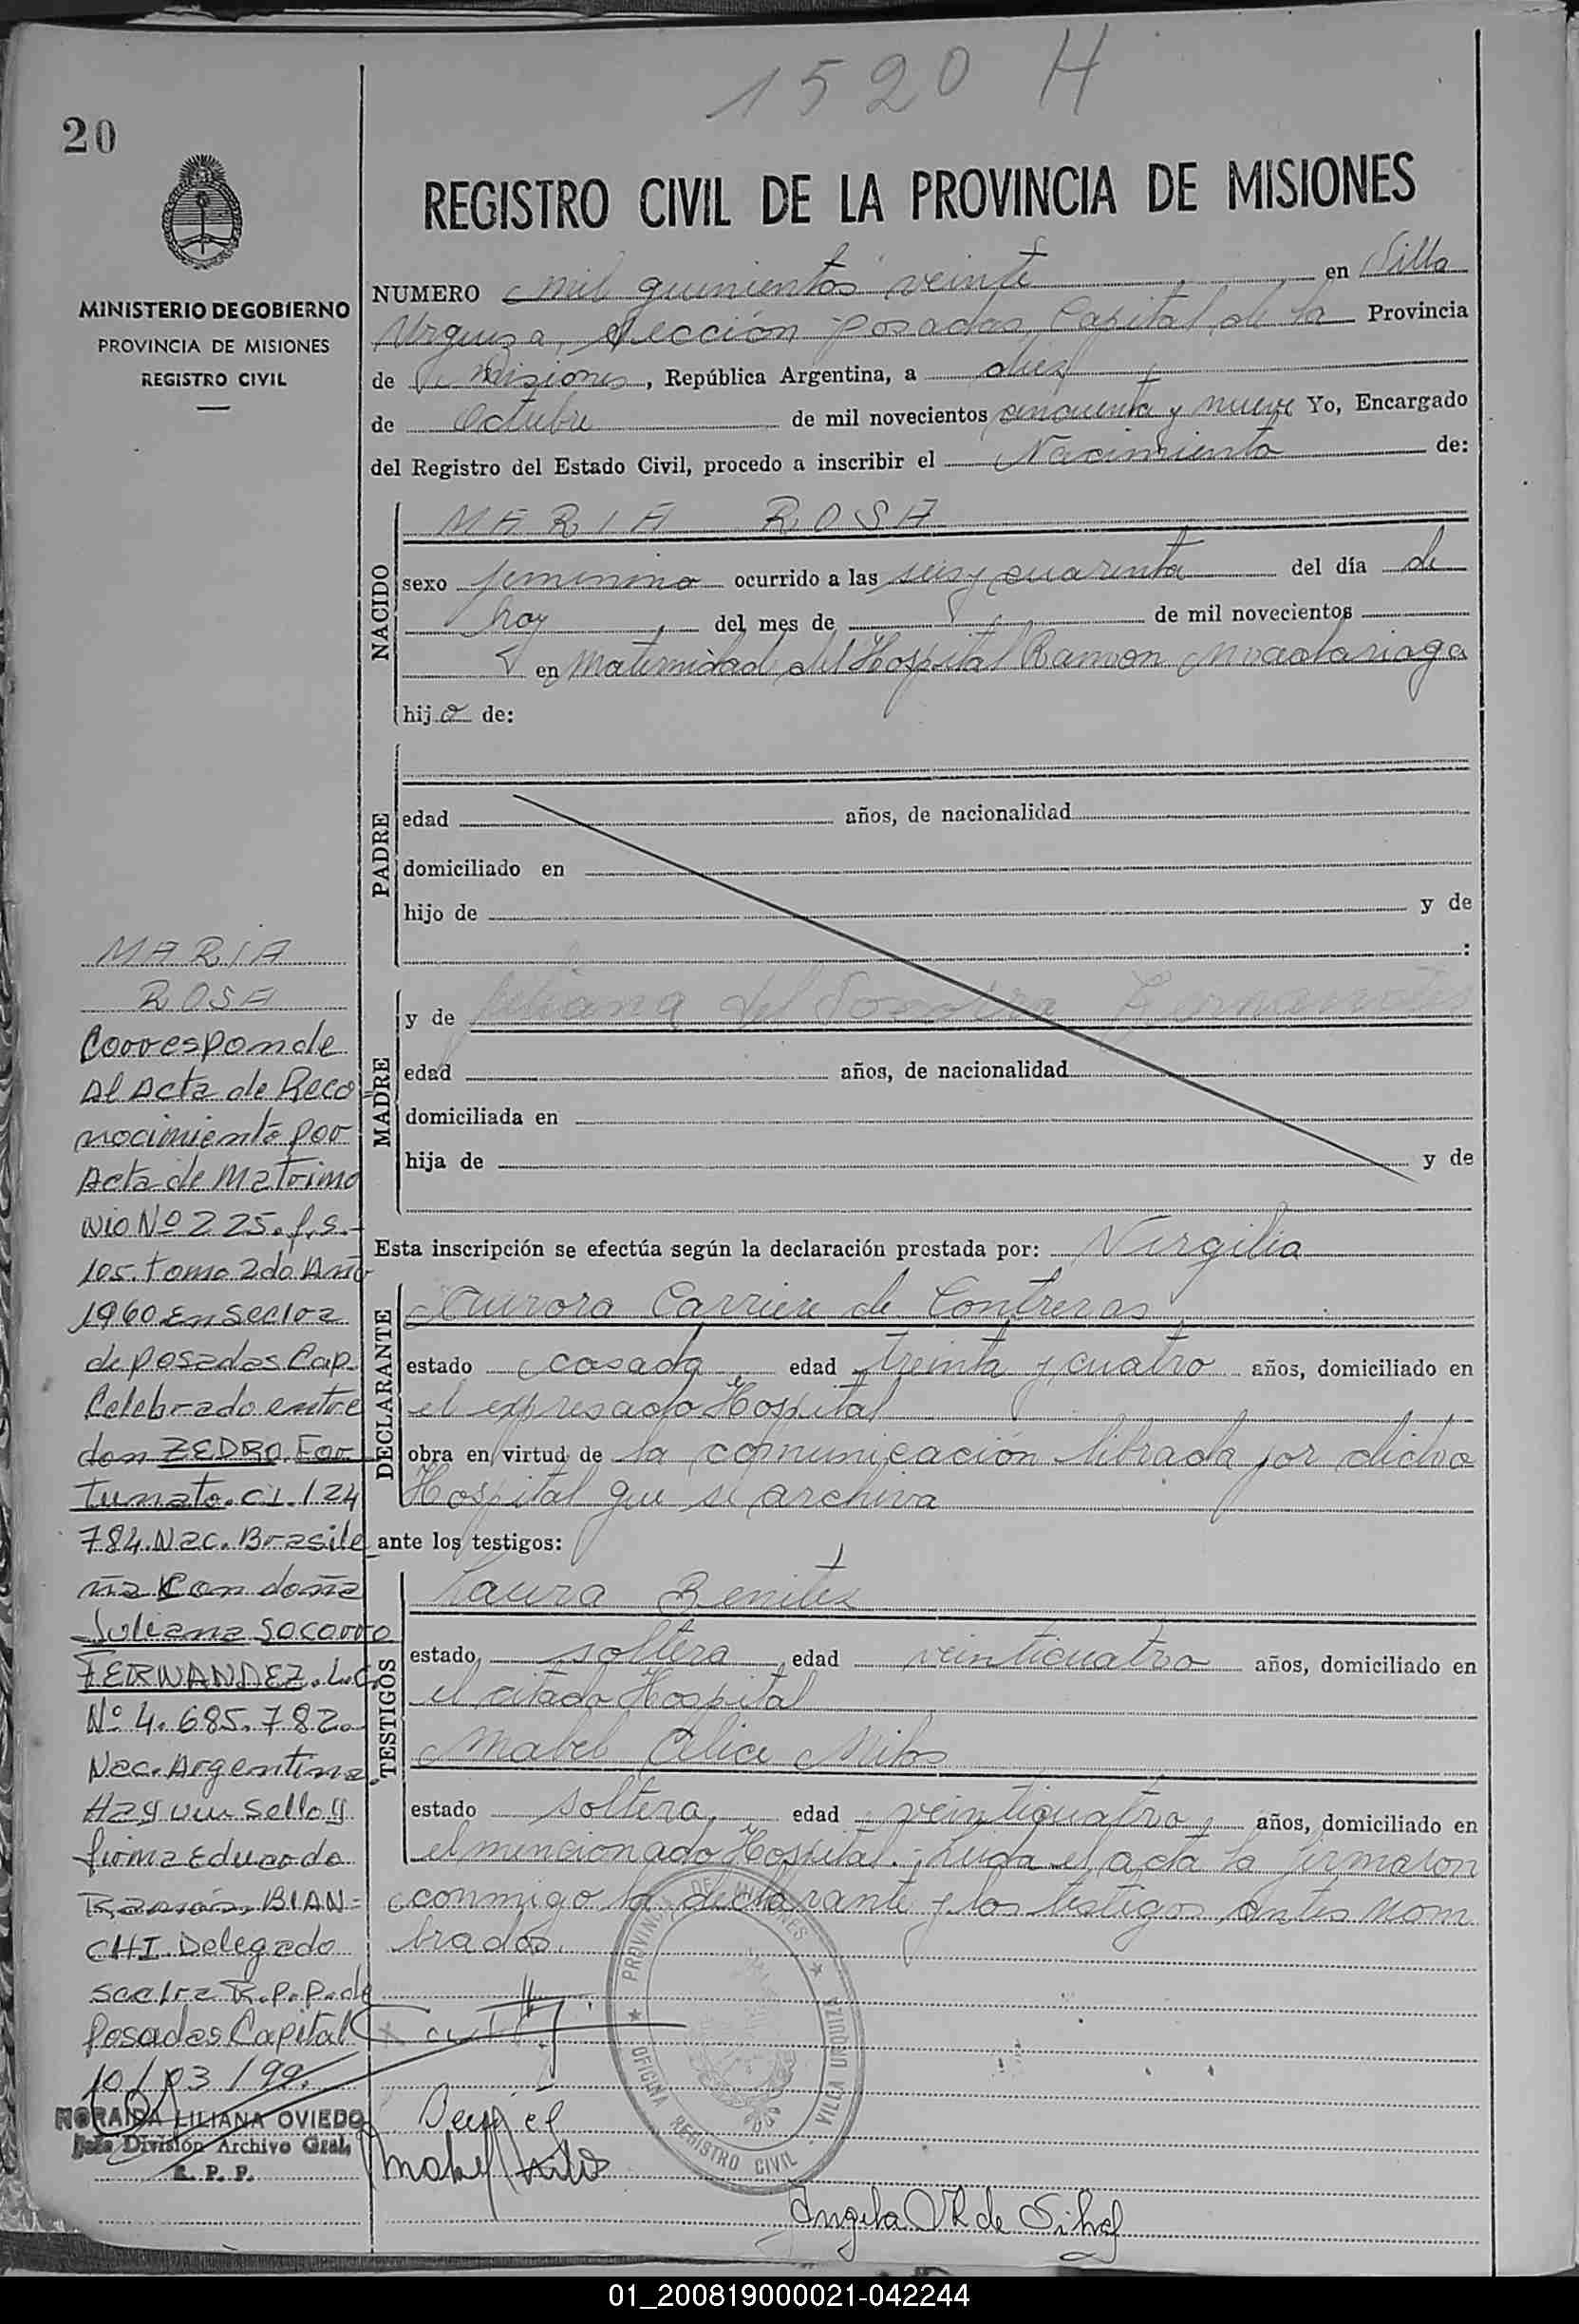 1520 H
20
REGISTRO CIVIL DE LA PROVINCIA DE MISIONES
MINISTERIO DE GOBIERNO
PROVINCIA DE MISIONES
REGISTRO CIVIL
NUMERO mil quinientos veinte en Villa
Urquiza, Sección Posadas, Capital de la Provincia
de Misiones, República Argentina, a diez
de Octubre de mil novecientos cincuenta y nueve Yo, Encargado
del Registro del Estado Civil, procedo a inscribir el Nacimiento de:
NACIDO
MARIA ROSA
sexo femenino ocurrido a las seis y cuarenta del día de
hoy, del mes de de mil novecientos
en Maternidad del Hospital Ramon Madariaga
hija de:
PADRE
edad años, de nacionalidad
domiciliado en
hijo de y de
:
MADRE
y de Juliana del Socorro Fernandez
edad años, de nacionalidad
domiciliada en
hija de y de
Esta inscripción se efectúa según la declaración prestada por: Virgilia
DECLARANTE
Aurora Carriere de Contreras
estado casada edad treinta y cuatro años, domiciliado en
el expresado Hospital
obra en virtud de la comunicación librada por dicho
Hospital que se archiva
ante los testigos:
TESTIGOS
Laura Benitez
estado soltera edad veinticuatro años, domiciliado en
el citado Hospital
Mabel Alice Milos
estado soltera, edad veinticuatro años, domiciliado en
el mencionado Hospital.- Leida el acta la firmaron
conmigo la declarante y los testigos antes nom
brados.
MARIA
ROSA
Corresponde
Al Acta de Reco
nocimiento por
Acta de Matrimo
nio Nº 225. f.s.
105. tomo 2do Año
1960 en secloz
de Posadas Cap.
Celebrado entre
don ZEDRO. For
tunato. C.I. 124
784. Nac. Brasile
ña Con doña
Juliana Socorro
FERNANDEZ. L.C.
Nº 4.685.782.
Nac. Argentina
Hay un Sello y
firma Eduardo
Ramón BIAN=
CHI Delegado
R.P.P. de
Posadas Capital
10/03/99.
NORAIDA LILIANA OVIEDO
Jefe División Archivo Gral.
R. P. P.
PROVINCIA DE MISIONES
OFICINA REGISTRO CIVIL
VILLA URQUIZA
Benitez
Mabel Milos
Angela de Silva
01_200819000021-042244